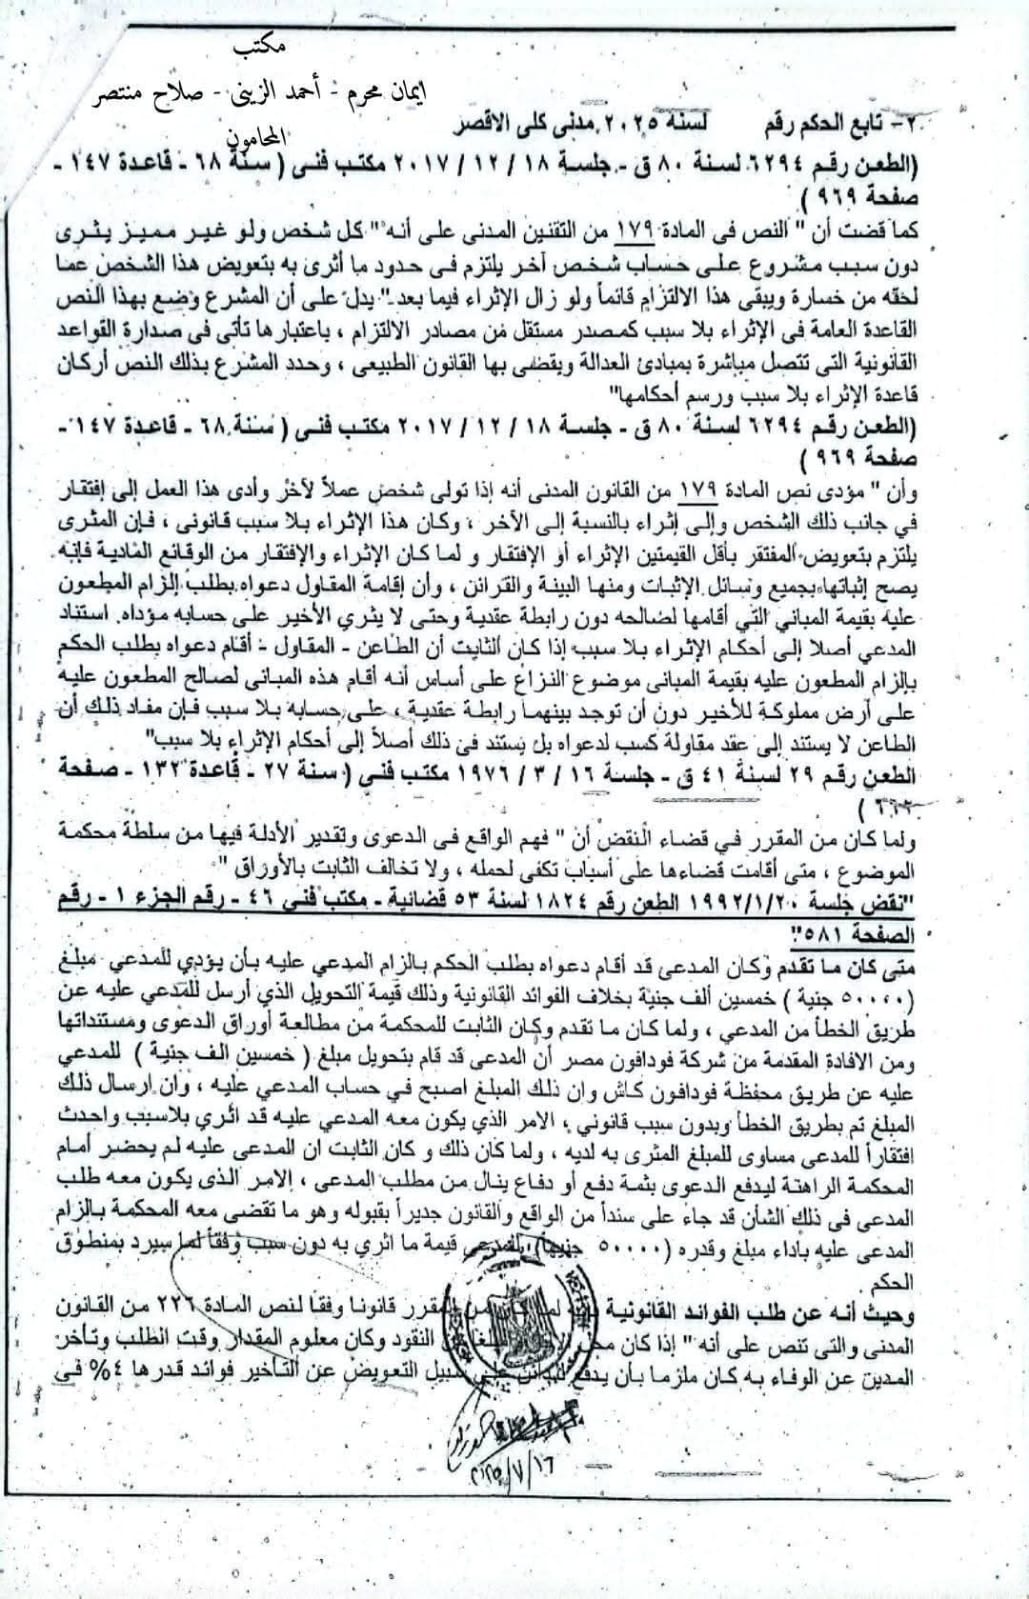 مكتب
ايمان محرم - أحمد الزينى - صلاح منتصر
المحامون
٢- تابع الحكم رقم لسنة ٢٠٢٥ مدنى كلى الاقصر
(الطعن رقم ٦٢٩٤ لسنة ٨٠ ق - جلسة ١٨ / ١٢ / ٢٠١٧ مكتب فنى ( سنة ٦٨ - قاعدة ١٤٧ -
صفحة ٩٦٩ )
كما قضت أن " النص فى المادة ١٧٩ من التقنين المدنى على أنه " كل شخص ولو غير مميز يثرى
دون سبب مشروع على حساب شخص آخر يلتزم فى حدود ما أثرى به بتعويض هذا الشخص عما
لحقه من خسارة ويبقى هذا الالتزام قائماً ولو زال الإثراء فيما بعد " يدل على أن المشرع وضع بهذا النص
القاعدة العامة فى الإثراء بلا سبب كمصدر مستقل من مصادر الالتزام ، باعتبارها تأتى فى صدارة القواعد
القانونية التى تتصل مباشرة بمبادئ العدالة ويقضى بها القانون الطبيعى ، وحدد المشرع بذلك النص أركان
قاعدة الإثراء بلا سبب ورسم أحكامها"
(الطعن رقم ٦٢٩٤ لسنة ٨٠ ق - جلسة ١٨ / ١٢ / ٢٠١٧ مكتب فنى ( سنة ٦٨ - قاعدة ١٤٧ -
صفحة ٩٦٩ )
وأن " مؤدى نص المادة ١٧٩ من القانون المدنى أنه إذا تولى شخص عملاً لآخر وأدى هذا العمل إلى إفتقار
في جانب ذلك الشخص وإلى إثراء بالنسبة إلى الآخر ، وكان هذا الإثراء بلا سبب قانونى ، فإن المثرى
يلتزم بتعويض المفتقر بأقل القيمتين الإثراء أو الإفتقار و لما كان الإثراء والإفتقار من الوقائع المادية فإنه
يصح إثباتها بجميع وسائل الإثبات ومنها البينة والقرائن ، وأن إقامة المقاول دعواه بطلب إلزام المطعون
عليه بقيمة المباني التي أقامها لصالحه دون رابطة عقدية وحتى لا يثري الأخير على حسابه مؤداه. استناد
المدعي أصلا إلى أحكام الإثراء بلا سبب إذا كان الثابت أن الطاعن - المقاول - أقام دعواه بطلب الحكم
بإلزام المطعون عليه بقيمة المبانى موضوع النزاع على أساس أنه أقام هذه المبانى لصالح المطعون عليه
على أرض مملوكة للأخير دون أن توجد بينهما رابطة عقدية ، على حسابه بلا سبب فإن مفاد ذلك أن
الطاعن لا يستند إلى عقد مقاولة كسب لدعواه بل يستند فى ذلك أصلاً إلى أحكام الإثراء بلا سبب"
الطعن رقم ٢٩ لسنة ٤١ ق - جلسة ١٦ / ٣ / ١٩٧٦ مكتب فني ( سنة ٢٧ - قاعدة ١٣٢ - صفحة
)
ولما كان من المقرر في قضاء النقض أن " فهم الواقع فى الدعوى وتقدير الأدلة فيها من سلطة محكمة
الموضوع ، متى أقامت قضاءها على أسباب تكفى لحمله ، ولا تخالف الثابت بالأوراق "
"نقض جلسة ١٩٩٢/١/٢٠ الطعن رقم ١٨٢٤ لسنة ٥٣ قضائية - مكتب فنى ٤٦ - رقم الجزء ١ - رقم
الصفحة ٥٨١"
متى كان ما تقدم وكان المدعى قد أقام دعواه بطلب الحكم بالزام المدعي عليه بأن يؤدي للمدعي مبلغ
(٥٠٠٠٠ جنية ) خمسين ألف جنية بخلاف الفوائد القانونية وذلك قيمة التحويل الذي أرسل للمدعي عليه عن
طريق الخطأ من المدعي ، ولما كان ما تقدم وكان الثابت للمحكمة من مطالعة أوراق الدعوى ومستنداتها
ومن الافادة المقدمة من شركة فودافون مصر أن المدعى قد قام بتحويل مبلغ ( خمسين الف جنية ) للمدعي
عليه عن طريق محفظة فودافون كاش وان ذلك المبلغ اصبح في حساب المدعي عليه ، وان ارسال ذلك
المبلغ تم بطريق الخطأ وبدون سبب قانوني ، الامر الذي يكون معه المدعي عليه قد اثري بلاسبب واحدث
افتقاراً للمدعى مساوى للمبلغ المثرى به لديه ، ولما كان ذلك و كان الثابت ان المدعى عليه لم يحضر أمام
المحكمة الراهنة ليدفع الدعوى بثمة دفع أو دفاع ينال من مطلب المدعى ، الامر الذى يكون معه طلب
المدعى فى ذلك الشأن قد جاء على سنداً من الواقع والقانون جديراً بقبوله وهو ما تقضى معه المحكمة بالزام
المدعى عليه بأداء مبلغ وقدره (٥٠٠٠٠ جنيها) للمدعى قيمة ما اثري به دون سبب وفقاً لما سيرد بمنطوق
الحكم .
وحيث أنه عن طلب الفوائد القانونية المقرر قانونا وفقا لنص المادة ٢٢٦ من القانون
المدنى والتى تنص على أنه " إذا كان النقود وكان معلوم المقدار وقت الطلب وتأخر
المدين عن الوفاء به كان ملزما بأن يدفع للدائن على سبيل التعويض عن التأخير فوائد قدرها ٤% فى
٢٠٢٥/٧/١٦